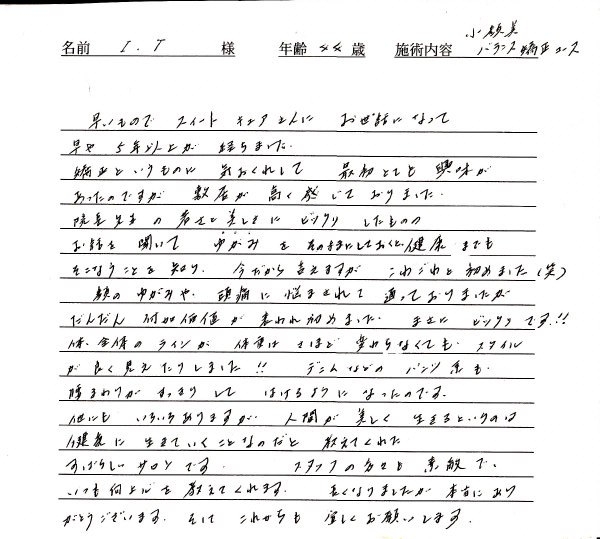 小顔美
名前 I.T 様 年齢 44 歳 施術内容 バランス矯正コース
早いもので スイートキュアさんに お世話になって
早や 5年以上が 経ちました.
矯正というものに 気おくれして 最初とても 興味が
あったのですが 敷居が 高く感じておりました.
院長先生の 若さと美しさに ビックリ したものの
お話を 聞いて ゆがみ を そのままにしておくと健康 までも
そこなうことを 知り. 今だから言えますが これこれと初めました(笑)
顔の ゆがみや. 頭痛に 悩まされて 通っておりましたが
だんだん 付加価値が 表われ初めました. まさに ビックリ です.!!
体.全体のラインが 体重は さほど 変わらなくても. スタイル
が良く見えたりしました!! デニムなどの パンツ系も.
腰まわりが すっきり して はけるように なったのです.
他にも いろいろありますが. 人間が 美しく 生きるというのは
健康に 生きていくことなのだと 教えてくれた
すばらしい サロン です. スタッフの方々も 素敵で.
いつも向上心を 教えてくれます. 長くなりましたが 本当にあり
がとうございます. そして これからも 宜しくお願いします.